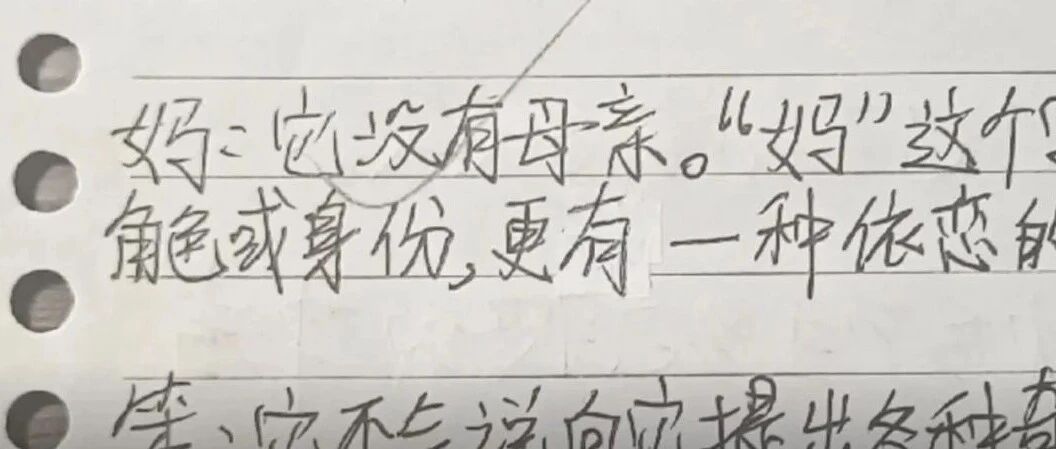 妈：它没有母亲。“妈”这个
角色或身份，更有一种依恋的
笨、它不会说向它提出各种奇